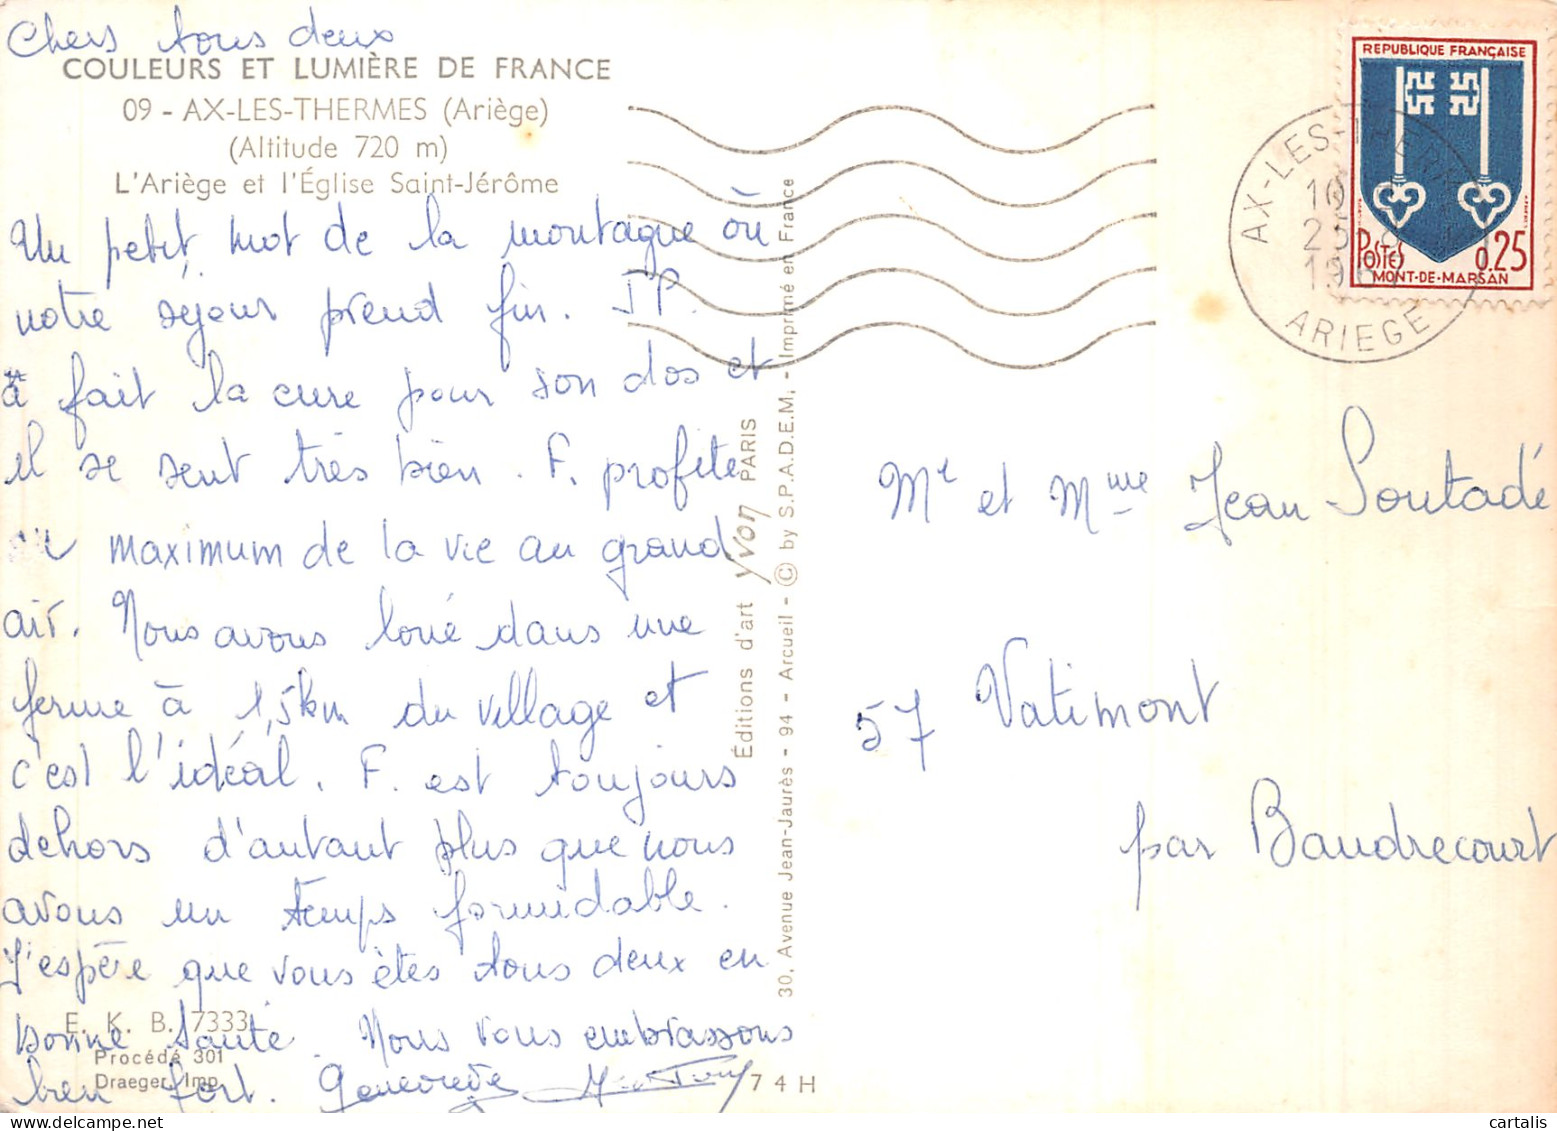 Chers tous deux
COULEURS ET LUMIÈRE DE FRANCE
09 - AX-LES-THERMES (Ariège)
(Altitude 720 m)
L'Ariège et l'Église Saint-Jérôme
Un petit mot de la montagne où
notre séjour prend fin. J.P.
a fait la cure pour son dos et
il se sent très bien. F. profite
au maximum de la vie au grand
air. Nous avons loué dans une
ferme à 1,5km du village et
c'est l'idéal. F. est toujours
dehors d'autant plus que nous
avons un temps formidable.
J'espère que vous êtes tous deux en
bonne santé. Nous vous embrassons
bien fort. Geneviève
E. K. B. 7333
Procédé 301
Draeger, Imp.
74 H
Éditions d'art yvon PARIS
30, Avenue Jean-Jaurès - 94 - Arcueil - © by S.P.A.D.E.M. - Imprimé en France
REPUBLIQUE FRANÇAISE
POSTES 0,25
MONT-DE-MARSAN
AX-LES-THERMES
ARIEGE
Mr et Mme Jean Soutadé
57 Vatimont
par Baudrecourt
cartalis